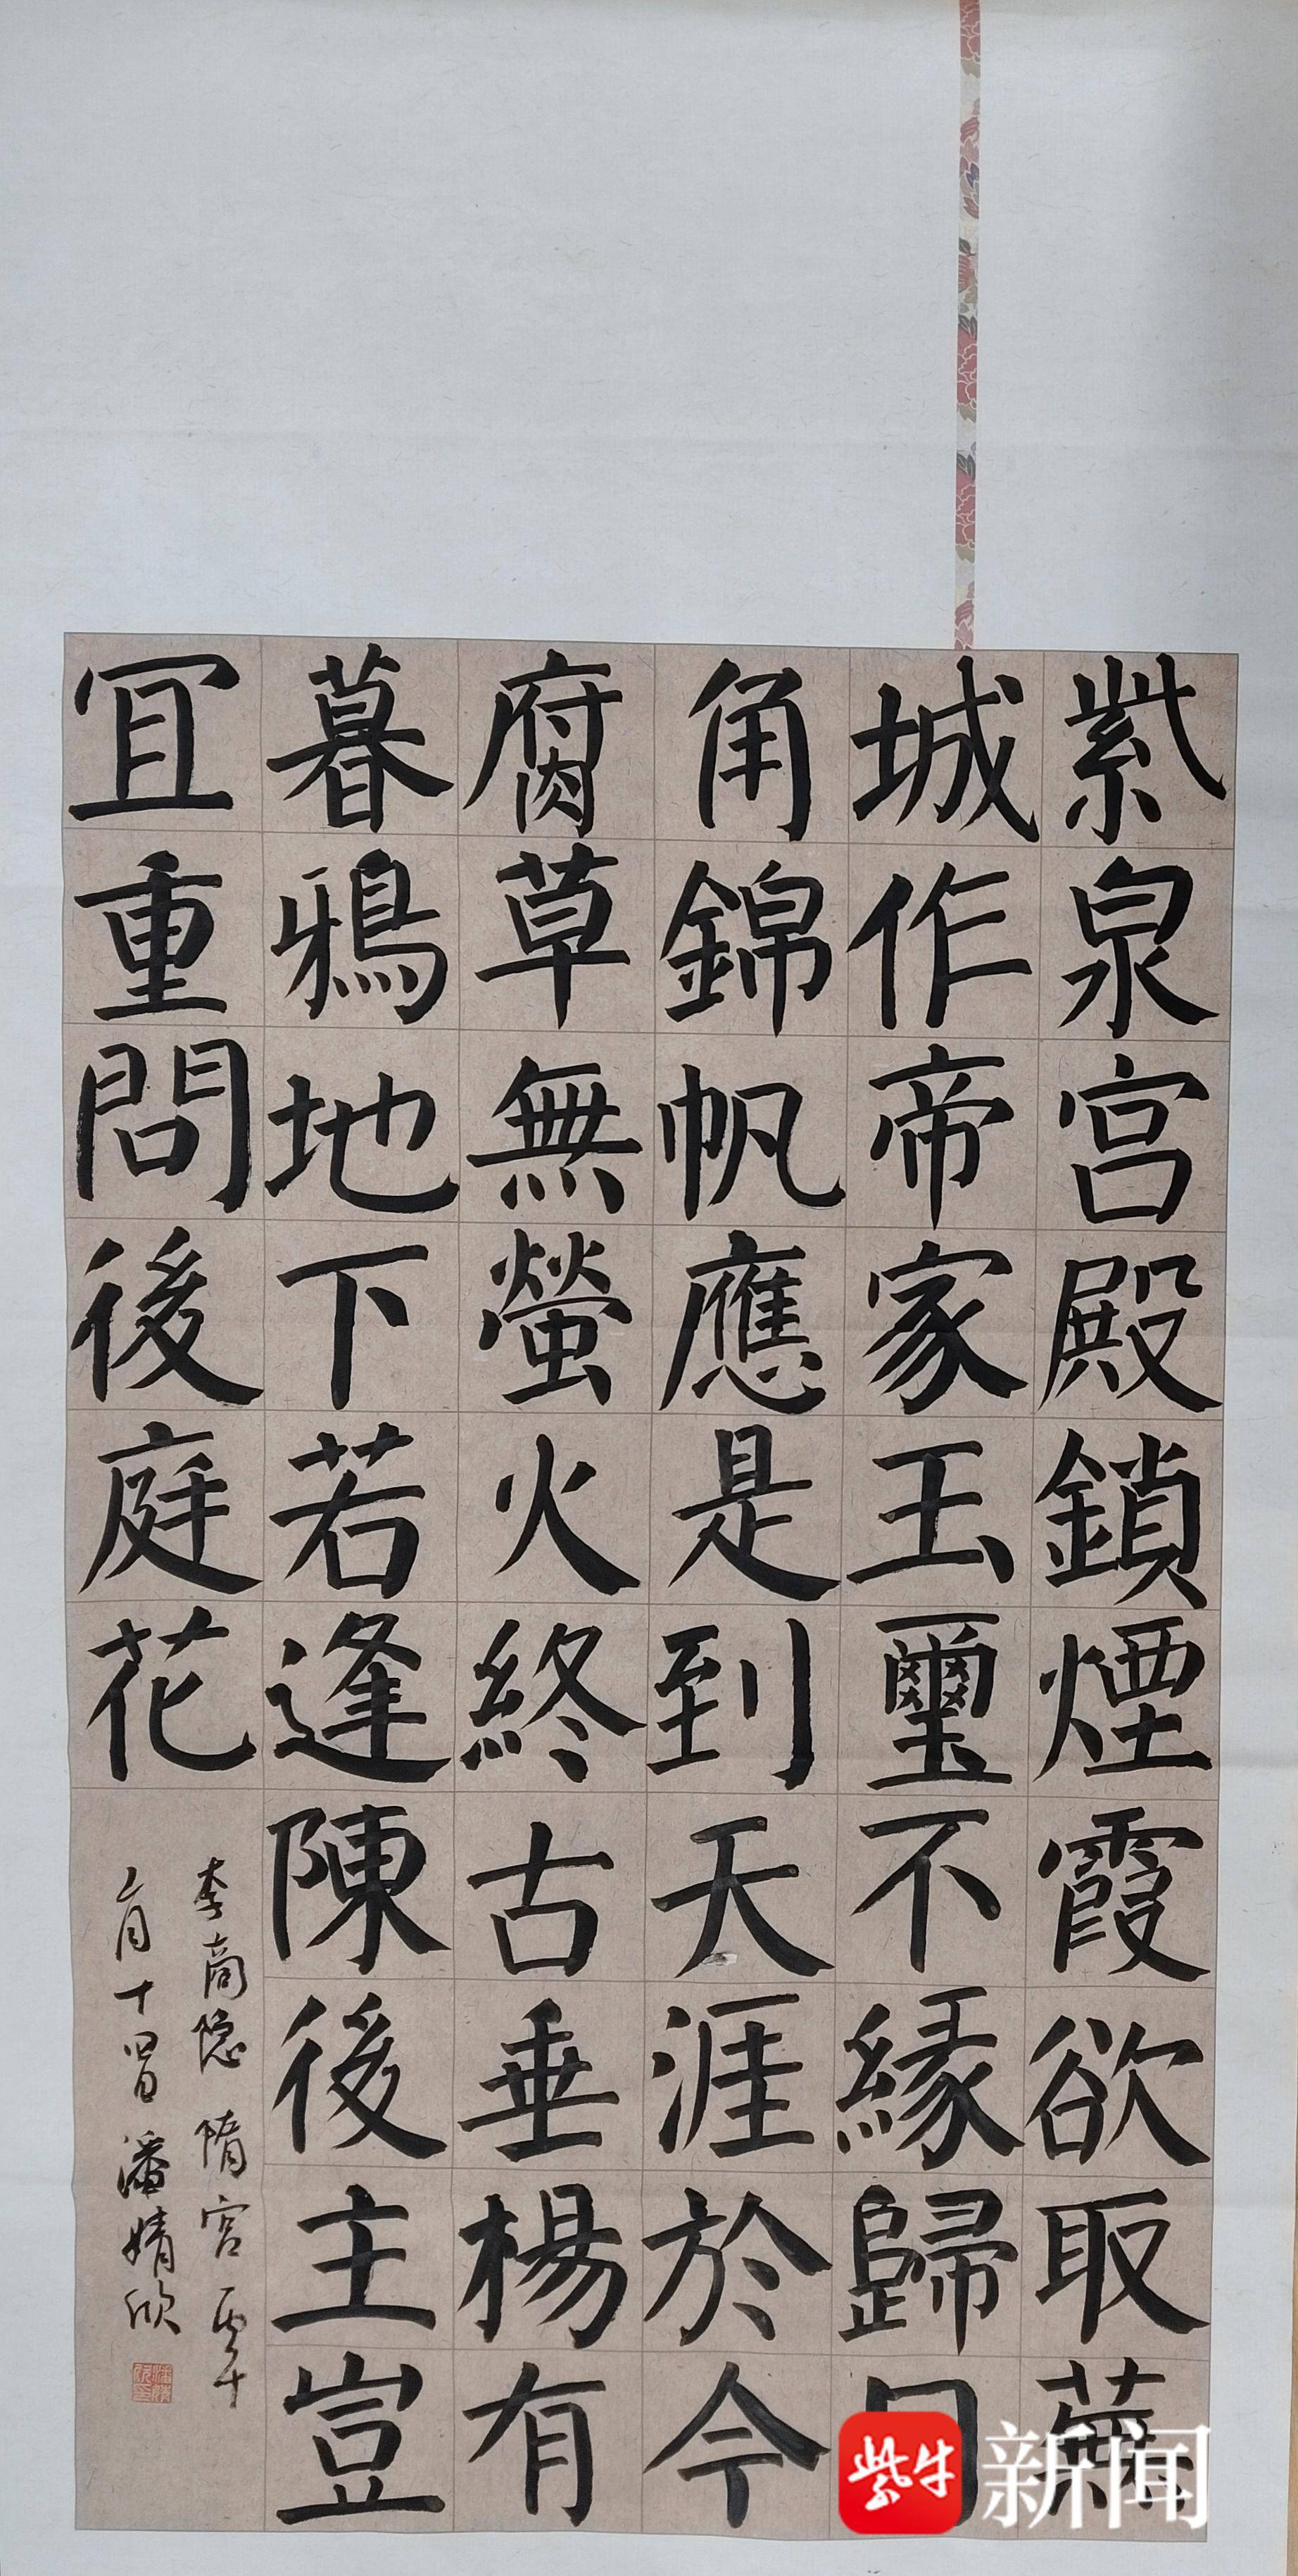 紫泉宫殿鎖煙霞欲取蕪
城作帝家玉璽不緣歸日
角錦帆應是到天涯於今
腐草無螢火終古垂楊有
暮鴉地下若逢陳後主豈
冝重問後庭花
李商隐 隋宫
潘婧欣
紫牛新闻